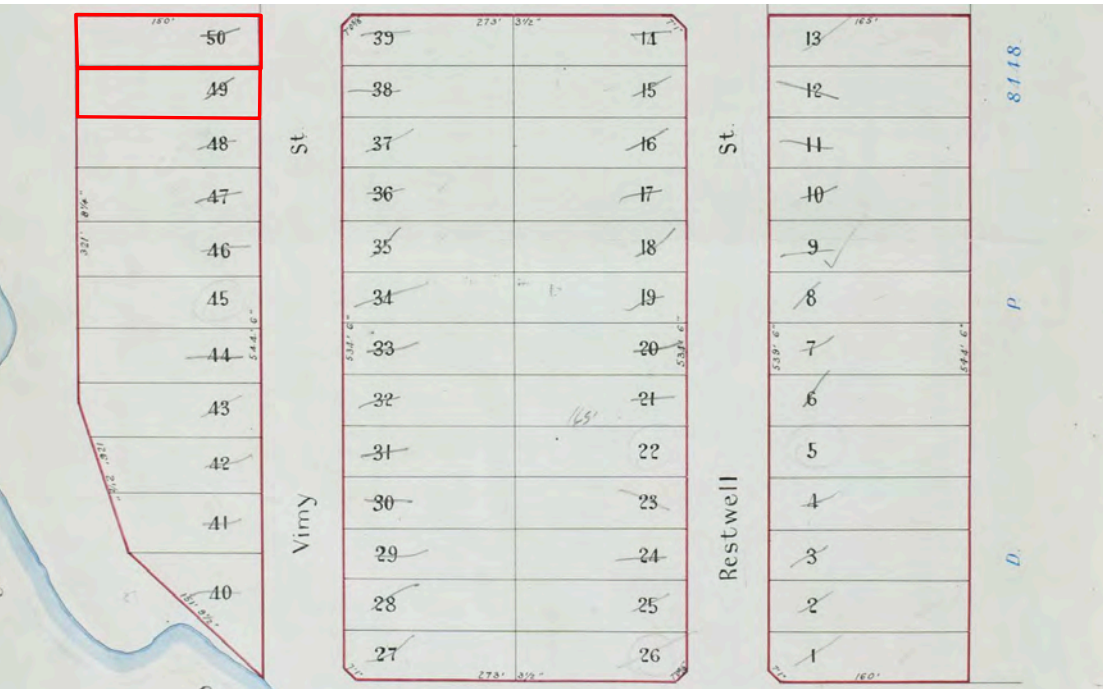 150'
50
49
48
47
46
45
44
43
42
41
40
321' 8¼"
544' 6"
126' 2½"
151' 9½"
Vimy St.
273' 3½"
39
38
37
36
35
34
33
32
31
30
29
28
27
534' 6"
14
15
16
17
18
19
20
21
22
23
24
25
26
534' 6"
7'1"
165'
7'1"
273' 3½"
Restwell St.
165'
13
12
11
10
9
8
7
6
5
4
3
2
1
539' 6"
544' 6"
7'1"
160'
D. P. 8448